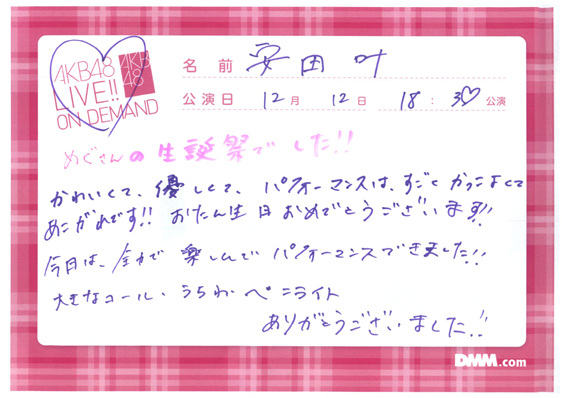 AKB48
LIVE!!
ON DEMAND
AKB
48
名前 安田 叶
公演日 12月 12日 18:30公演
めぐさんの生誕祭でした!!
かわいくて、優しくて、パフォーマンスは、すごくかっこよくて
あこがれです!! おたん生日おめでとうございます!!
今日は、全力で楽しんでパフォーマンスできました!!
大きなコール、うちわ、ペンライト
ありがとうございました!!
DMM.com